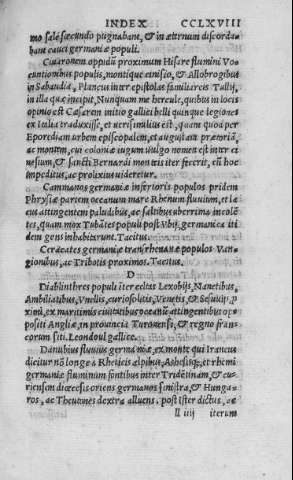 INDEX CCLXVIII
mo sale fœcundo pugnabant, & in æternum discorda-
bant cauci germaniæ populi.
Cuaronem oppidū proximum Hisare flumini Vo
cuntionibus populis, montique cinisio, & Allobrogibus
in Sabaudia, Plancus inter epistolas familiareis Tullij,
in illa quæ incipit, Nunquam me hercule, quibus in locis
opinio est Cæsarem initio gallici belli quinque legiones
ex italia traduxisse, et verisimilius est, quam quod per
Eporediam urbem episcopalem, et augustam prætoriā,
ac montem, cui coloniæ iugum vulgo nomen est inter ci
nesium, & sancti Bernardi monteis iter fecerit, cū hoc
impeditius, ac prolixius uideretur.
Cammanos germaniæ inferioris populos pridem
Phrysiæ partem oceanum mare Rhenum fluuium, et la
cus attingentem paludibus, ac saltibus uberrima incolē
tes, quam mox Tubātes populi post Vbij germaniæ iti
dem gens inhabitarunt. Tacitus.
Ceracates germaniæ transrhenanæ populos Van
gionibus, ac Tribotis proximos. Tacitus.
D
Diablinthres populi iterceltas Lexobijs, Nanetibus,
Ambiliatibus, Vnelis, curiosolitis, Venetis, & Sesuuijs, p
ximi, ex maritimis ciuitatibus oceanū attingentibus op
positi Angliæ, in prouincia Turonensi, & regno fran-
corum siti. Leondoul gallice.
Danubius fluuius germaniæ, ex monte qui Irancus
dicitur nō longe a Rheticis alpibus, Athesisq;, et rhemi
germaniæ fluminum fontibus inter Tridētinam, & cu-
riensem diœcesis oriens germanos sinistra, & Hunga
ros, ac Theutones dextra alluens, post Ister dictus, ac
ll iiij iterum